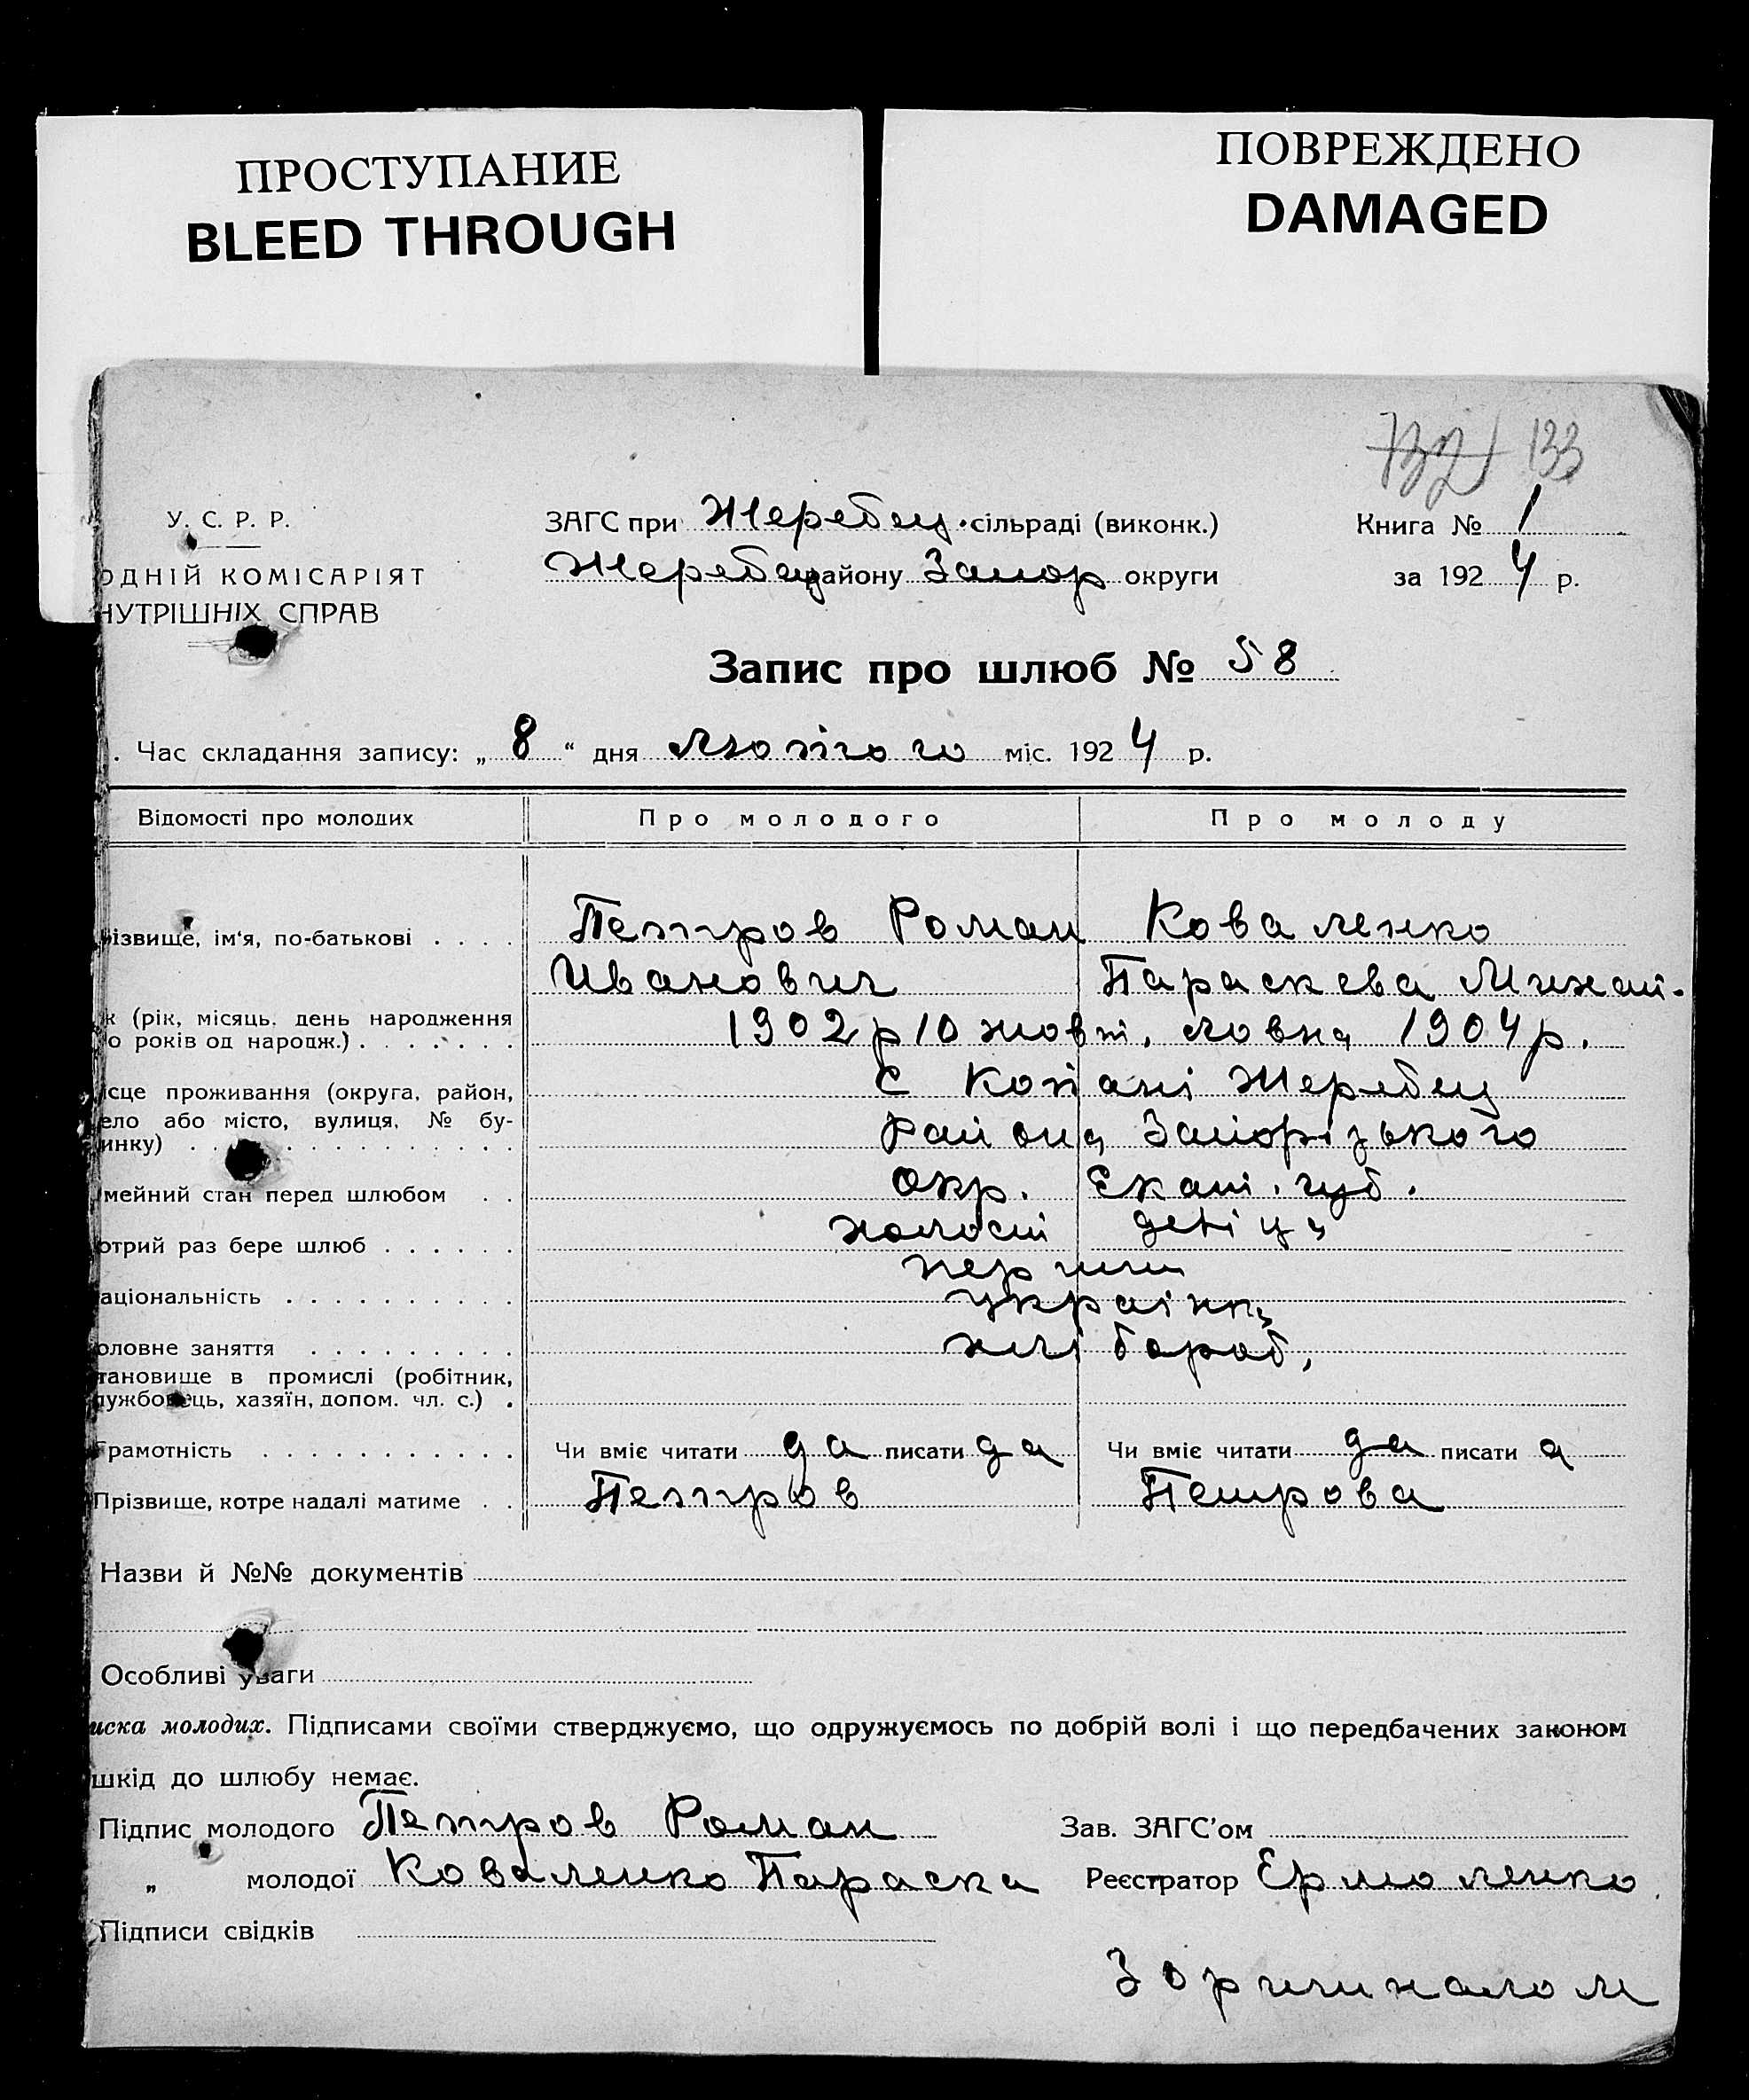 ПРОСТУПАНИЕ
BLEED THROUGH
ПОВРЕЖДЕНО
DAMAGED
132 133
У. С. Р. Р.
ОДНІЙ КОМІСАРІЯТ
НУТРІШНІХ СПРАВ
ЗАГС при Жеребец. сільраді (виконк.)
Жеребец району Запор округи
Книга № 1
за 1924 р.
Запис про шлюб № 58
. Час складання запису: „ 8 “ дня лютого міс. 1924 р.
Відомості про молодих Про молодого Про молоду
різвище, ім'я, по-батькові . . . . Петров Роман Коваленко
Иванович Параскева Михай-
к (рік, місяць, день народження
о років од народж.) . . . . . . . 1902 р 10 жовт. ловна 1904 р.
ісце проживання (округа, район, С Копані Жеребец
ело або місто, вулиця, № бу-
инку) . . . . . . . . . . . . . района Запорізького
Окр. Екат. губ.
мейний стан перед шлюбом . .
холост девіца
отрий раз бере шлюб . . . . . .
перший
аціональність . . . . . . . . . . українц
оловне заняття . . . . . . . . . . хлібороб,
тановище в промислі (робітник,
лужбовець, хазяїн, допом. чл. с.) .
Грамотність . . . . . . . . . . . Чи вміє читати да писати да Чи вміє читати да писати а
Прізвище, котре надалі матиме . . Петров Петрова
Назви й №№ документів
Особливі уваги
иска молодих. Підписами своїми стверджуємо, що одружуємось по добрій волі і що передбачених законом
шкід до шлюбу немає.
Підпис молодого Петров Роман Зав. ЗАГС'ом
„ молодої Коваленко Параска Реєстратор Ермоленко
Підписи свідків
З оригиналом